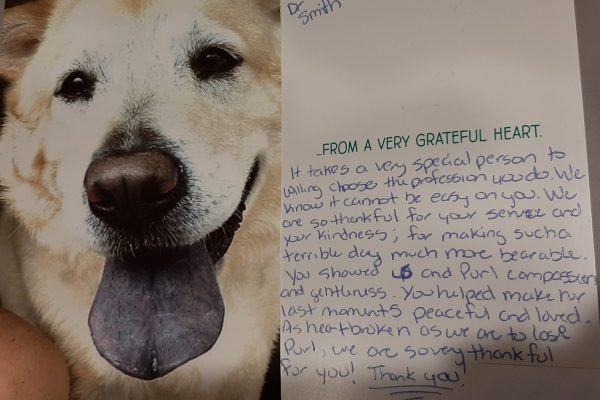 Dr
Smith
...FROM A VERY GRATEFUL HEART.
It takes a very special person to
willing choose the profession you do. We
know it cannot be easy on you. We
are so thankful for your service and
your kindness; for making such a
terrible day much more bearable.
You showed us and Purl compassion
and gentleness. You helped make her
last moments peaceful and loved.
As heartbroken as we are to lose
Purl, we are so very thankful
for you! Thank you!